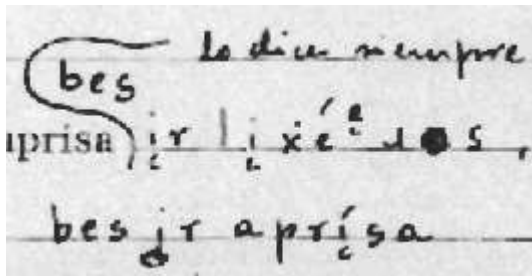 lo dicen siempre
bes
aprisa ir
bes ir aprísa